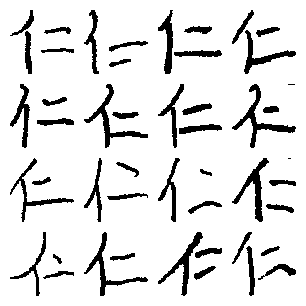 仁仁仁仁
仁仁仁仁
仁仁仁仁
仁仁仁仁